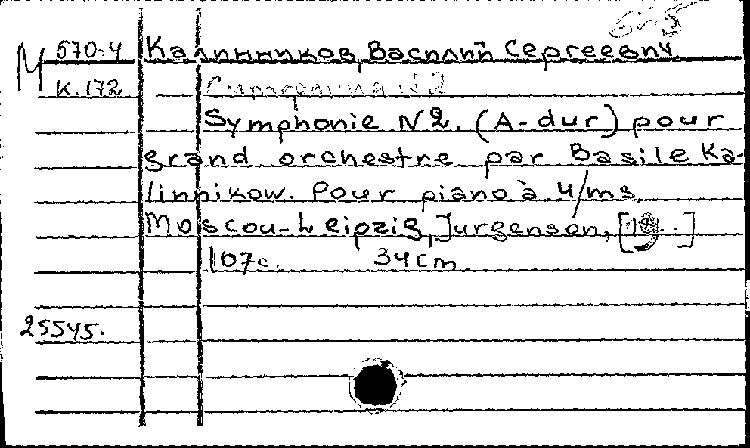 М 570-4 Калинников, Василий Сергеевич
К.172 Симфония №2
Symphonie N2. (A-dur) pour
grand orchestre par Basile Ka-
linnikow. Pour piano à 4/ms.
Moscou-Leipzig, Jurgenson, [19..]
107с. 34cm
25545.